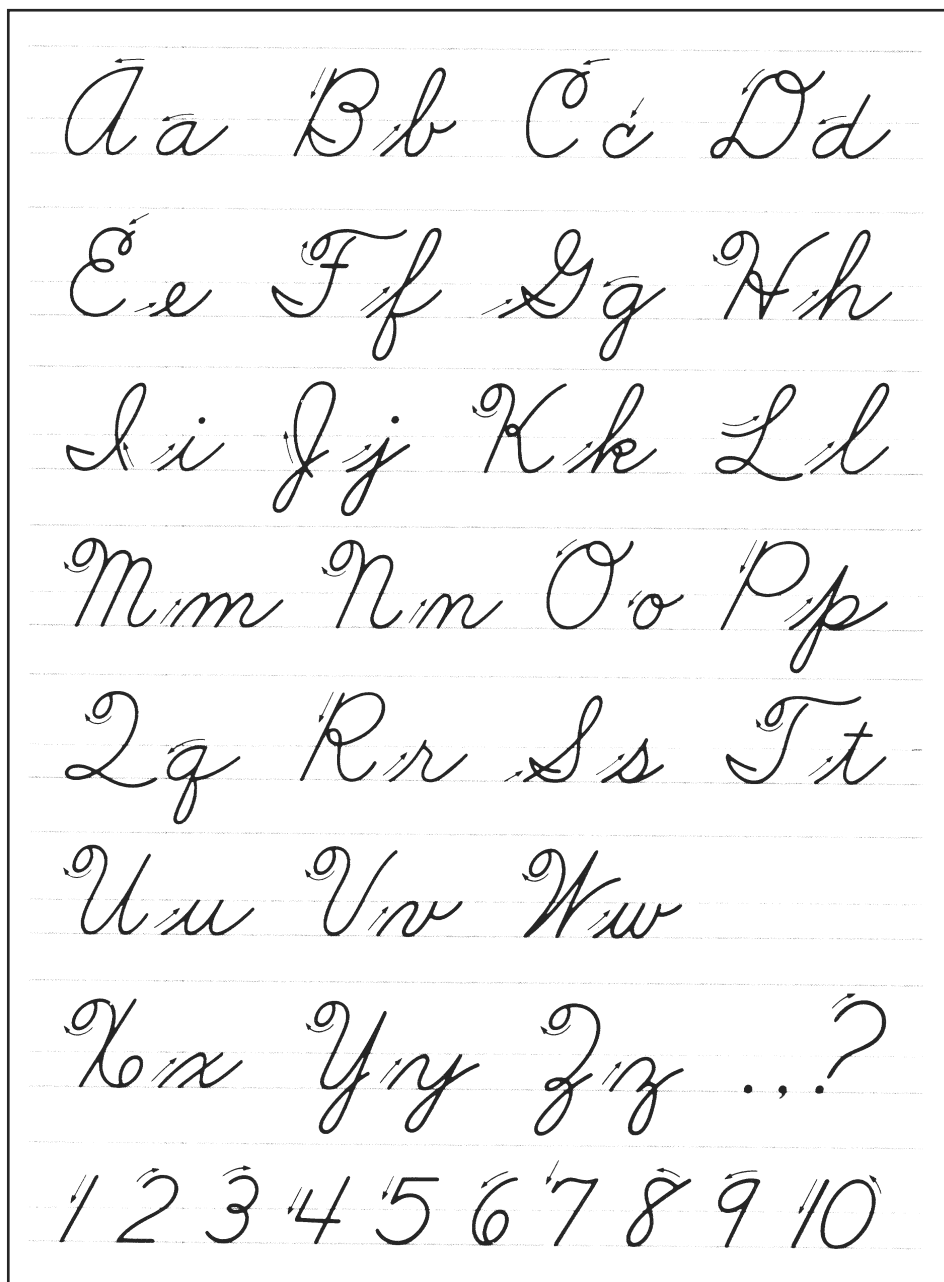 Aa Bb Cc Dd
Ee Ff Gg Hh
Ii Jj Kk Ll
Mm Nn Oo Pp
Qq Rr Ss Tt
Uu Vv Ww
Xx Yy Zz . , ?
1 2 3 4 5 6 7 8 9 10